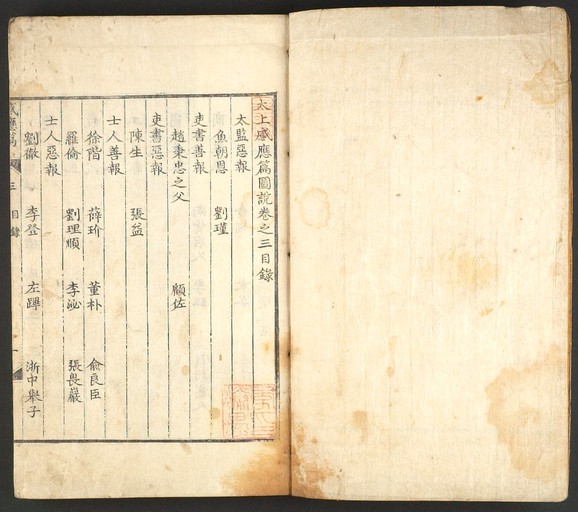 太上感應篇圖說卷之三目錄
太監惡報
魚朝恩 劉瑾
吏書善報
趙秉忠之父 顧佐
吏書惡報
陳生 張益
士人善報
徐階 薛玠 董朴 俞良臣
羅倫 劉理順 李泌 張畏巖
士人惡報
劉徹 李登 左蹕 浙中舉子
感應篇 三 目錄 一